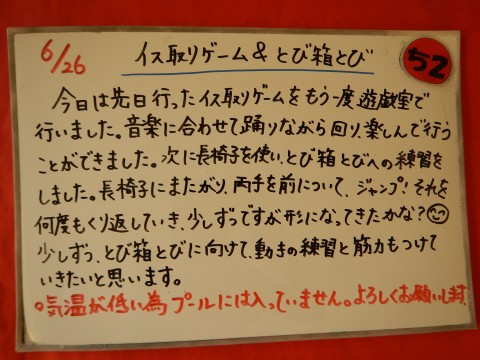 6/26 イス取りゲーム & とび箱とび
今日は先日行ったイス取りゲームをもう一度遊戯室で
行いました。音楽に合わせて踊りながら回り、楽しんで行う
ことができました。次に長椅子を使い、とび箱とびへの練習を
しました。長椅子にまたがり、両手を前について、ジャンプ！それを
何度もくり返していき、少しずつですが形になってきたかな？
少しずつ、とび箱とびに向けて、動きの練習と筋力もつけて
いきたいと思います。
○気温が低い為プールには入っていません。よろしくお願いします。